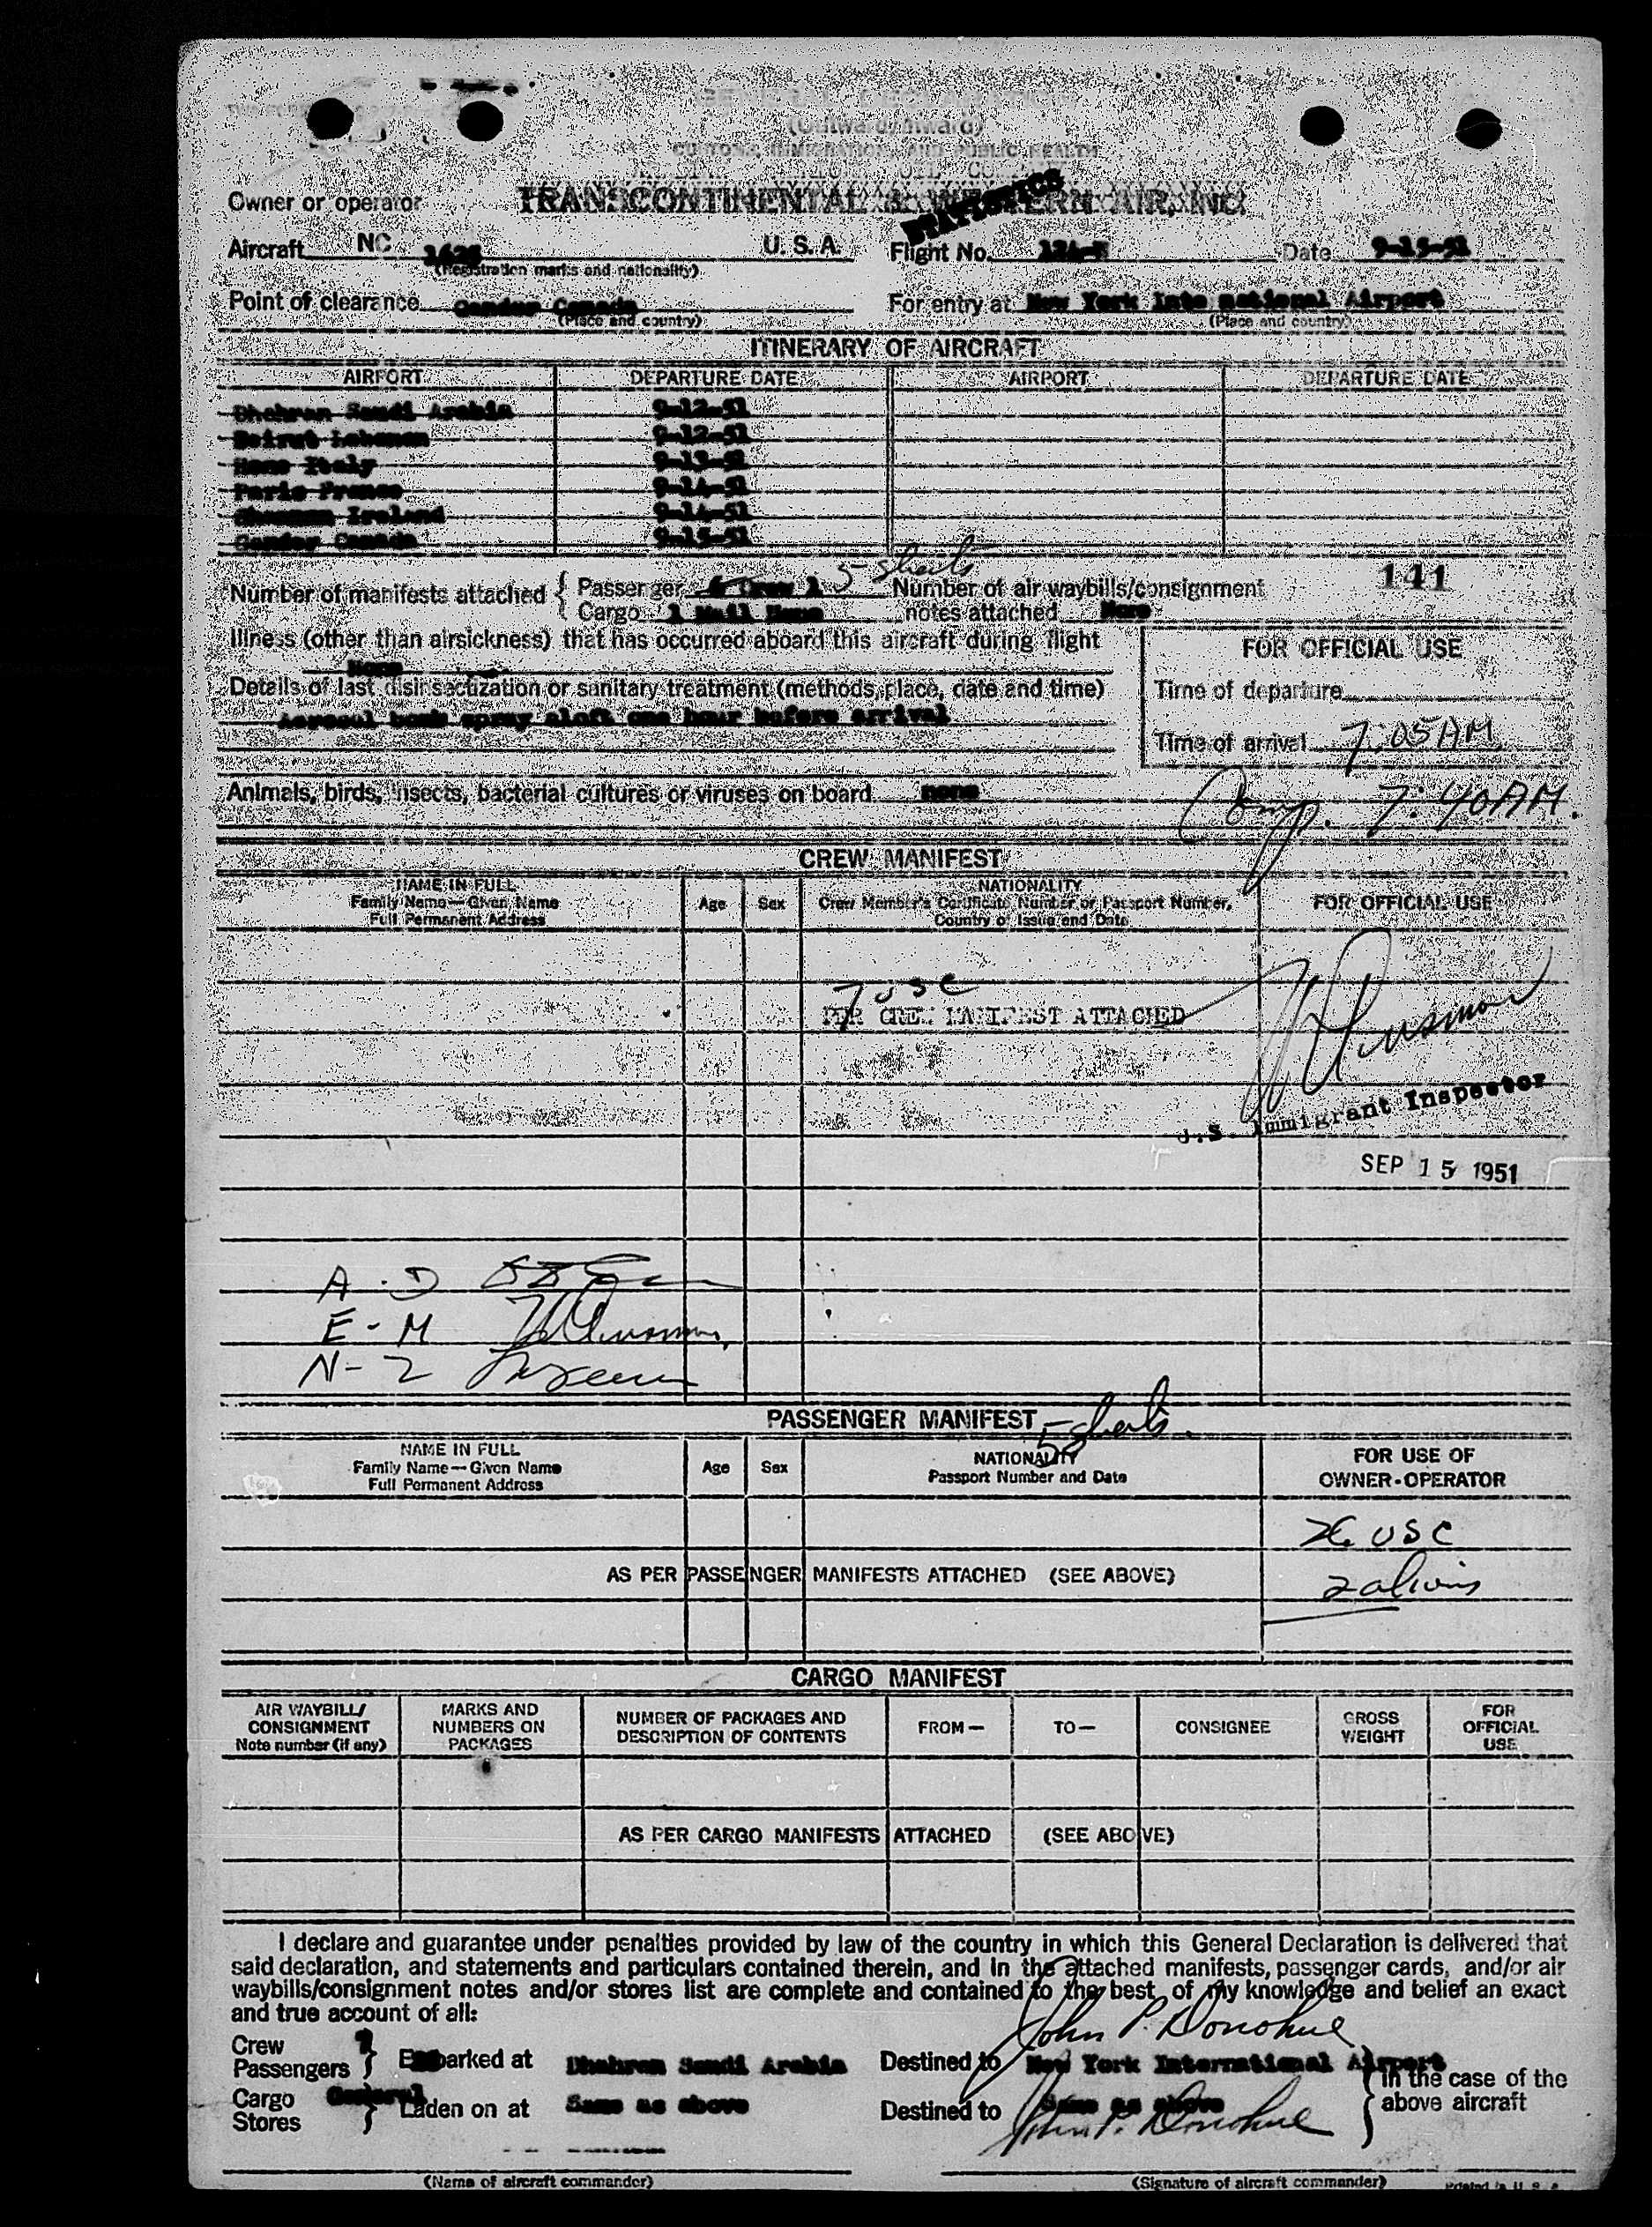 (Outward/Inward)
CUSTOMS, IMMIGRATION, AND PUBLIC HEALTH
Owner or operator TRANSCONTINENTAL & WESTERN AIR, INC.
STATISTICS
Aircraft NC U. S. A. Flight No. Date 9-15-51
(Registration marks and nationality)
Point of clearance Gander Canada For entry at New York International Airport
(Place and country) (Place and country)
ITINERARY OF AIRCRAFT
AIRPORT DEPARTURE DATE AIRPORT DEPARTURE DATE
Dhahran Saudi Arabia 9-12-51
Beirut Lebanon 9-12-51
Rome Italy 9-13-51
Paris France 9-14-51
Shannon Ireland 9-14-51
Gander Canada 9-15-51
Number of manifests attached { Passenger Crew 1 5 sheets Number of air waybills/consignment 141
Cargo 1 Mail None notes attached None
Illness (other than airsickness) that has occurred aboard this aircraft during flight
None
FOR OFFICIAL USE
Details of last disinsectization or sanitary treatment (methods, place, date and time)
Time of departure
Aerosol bomb spray aloft one hour before arrival
Time of arrival 7:05 AM
Animals, birds, insects, bacterial cultures or viruses on board none
Comp. 7:40 AM.
CREW MANIFEST
NAME IN FULL NATIONALITY
Family Name—Given Name Age Sex Crew Member's Certificate Number or Passport Number, FOR OFFICIAL USE
Full Permanent Address Country of Issue and Date
7 USC
PER CREW MANIFEST ATTACHED
U.S. Immigrant Inspector
SEP 15 1951
A - D
E - M
N - Z
PASSENGER MANIFEST 5 sheets.
NAME IN FULL NATIONALITY FOR USE OF
Family Name—Given Name Age Sex Passport Number and Date OWNER-OPERATOR
Full Permanent Address
26 USC
AS PER PASSENGER MANIFESTS ATTACHED (SEE ABOVE) 2 aliens
CARGO MANIFEST
AIR WAYBILL/ MARKS AND NUMBER OF PACKAGES AND FROM— TO— CONSIGNEE GROSS FOR
CONSIGNMENT NUMBERS ON DESCRIPTION OF CONTENTS WEIGHT OFFICIAL
Note number (if any) PACKAGES USE
AS PER CARGO MANIFESTS ATTACHED (SEE ABOVE)
I declare and guarantee under penalties provided by law of the country in which this General Declaration is delivered that
said declaration, and statements and particulars contained therein, and in the attached manifests, passenger cards, and/or air
waybills/consignment notes and/or stores list are complete and contained to the best of my knowledge and belief an exact
and true account of all:
John P. Donohue
Crew
Passengers } Embarked at Dhahran Saudi Arabia Destined to New York International Airport
in the case of the
Cargo General
Stores } Laden on at Same as above Destined to Same as above above aircraft
John P. Donohue
(Name of aircraft commander) (Signature of aircraft commander) Printed in U. S. A.